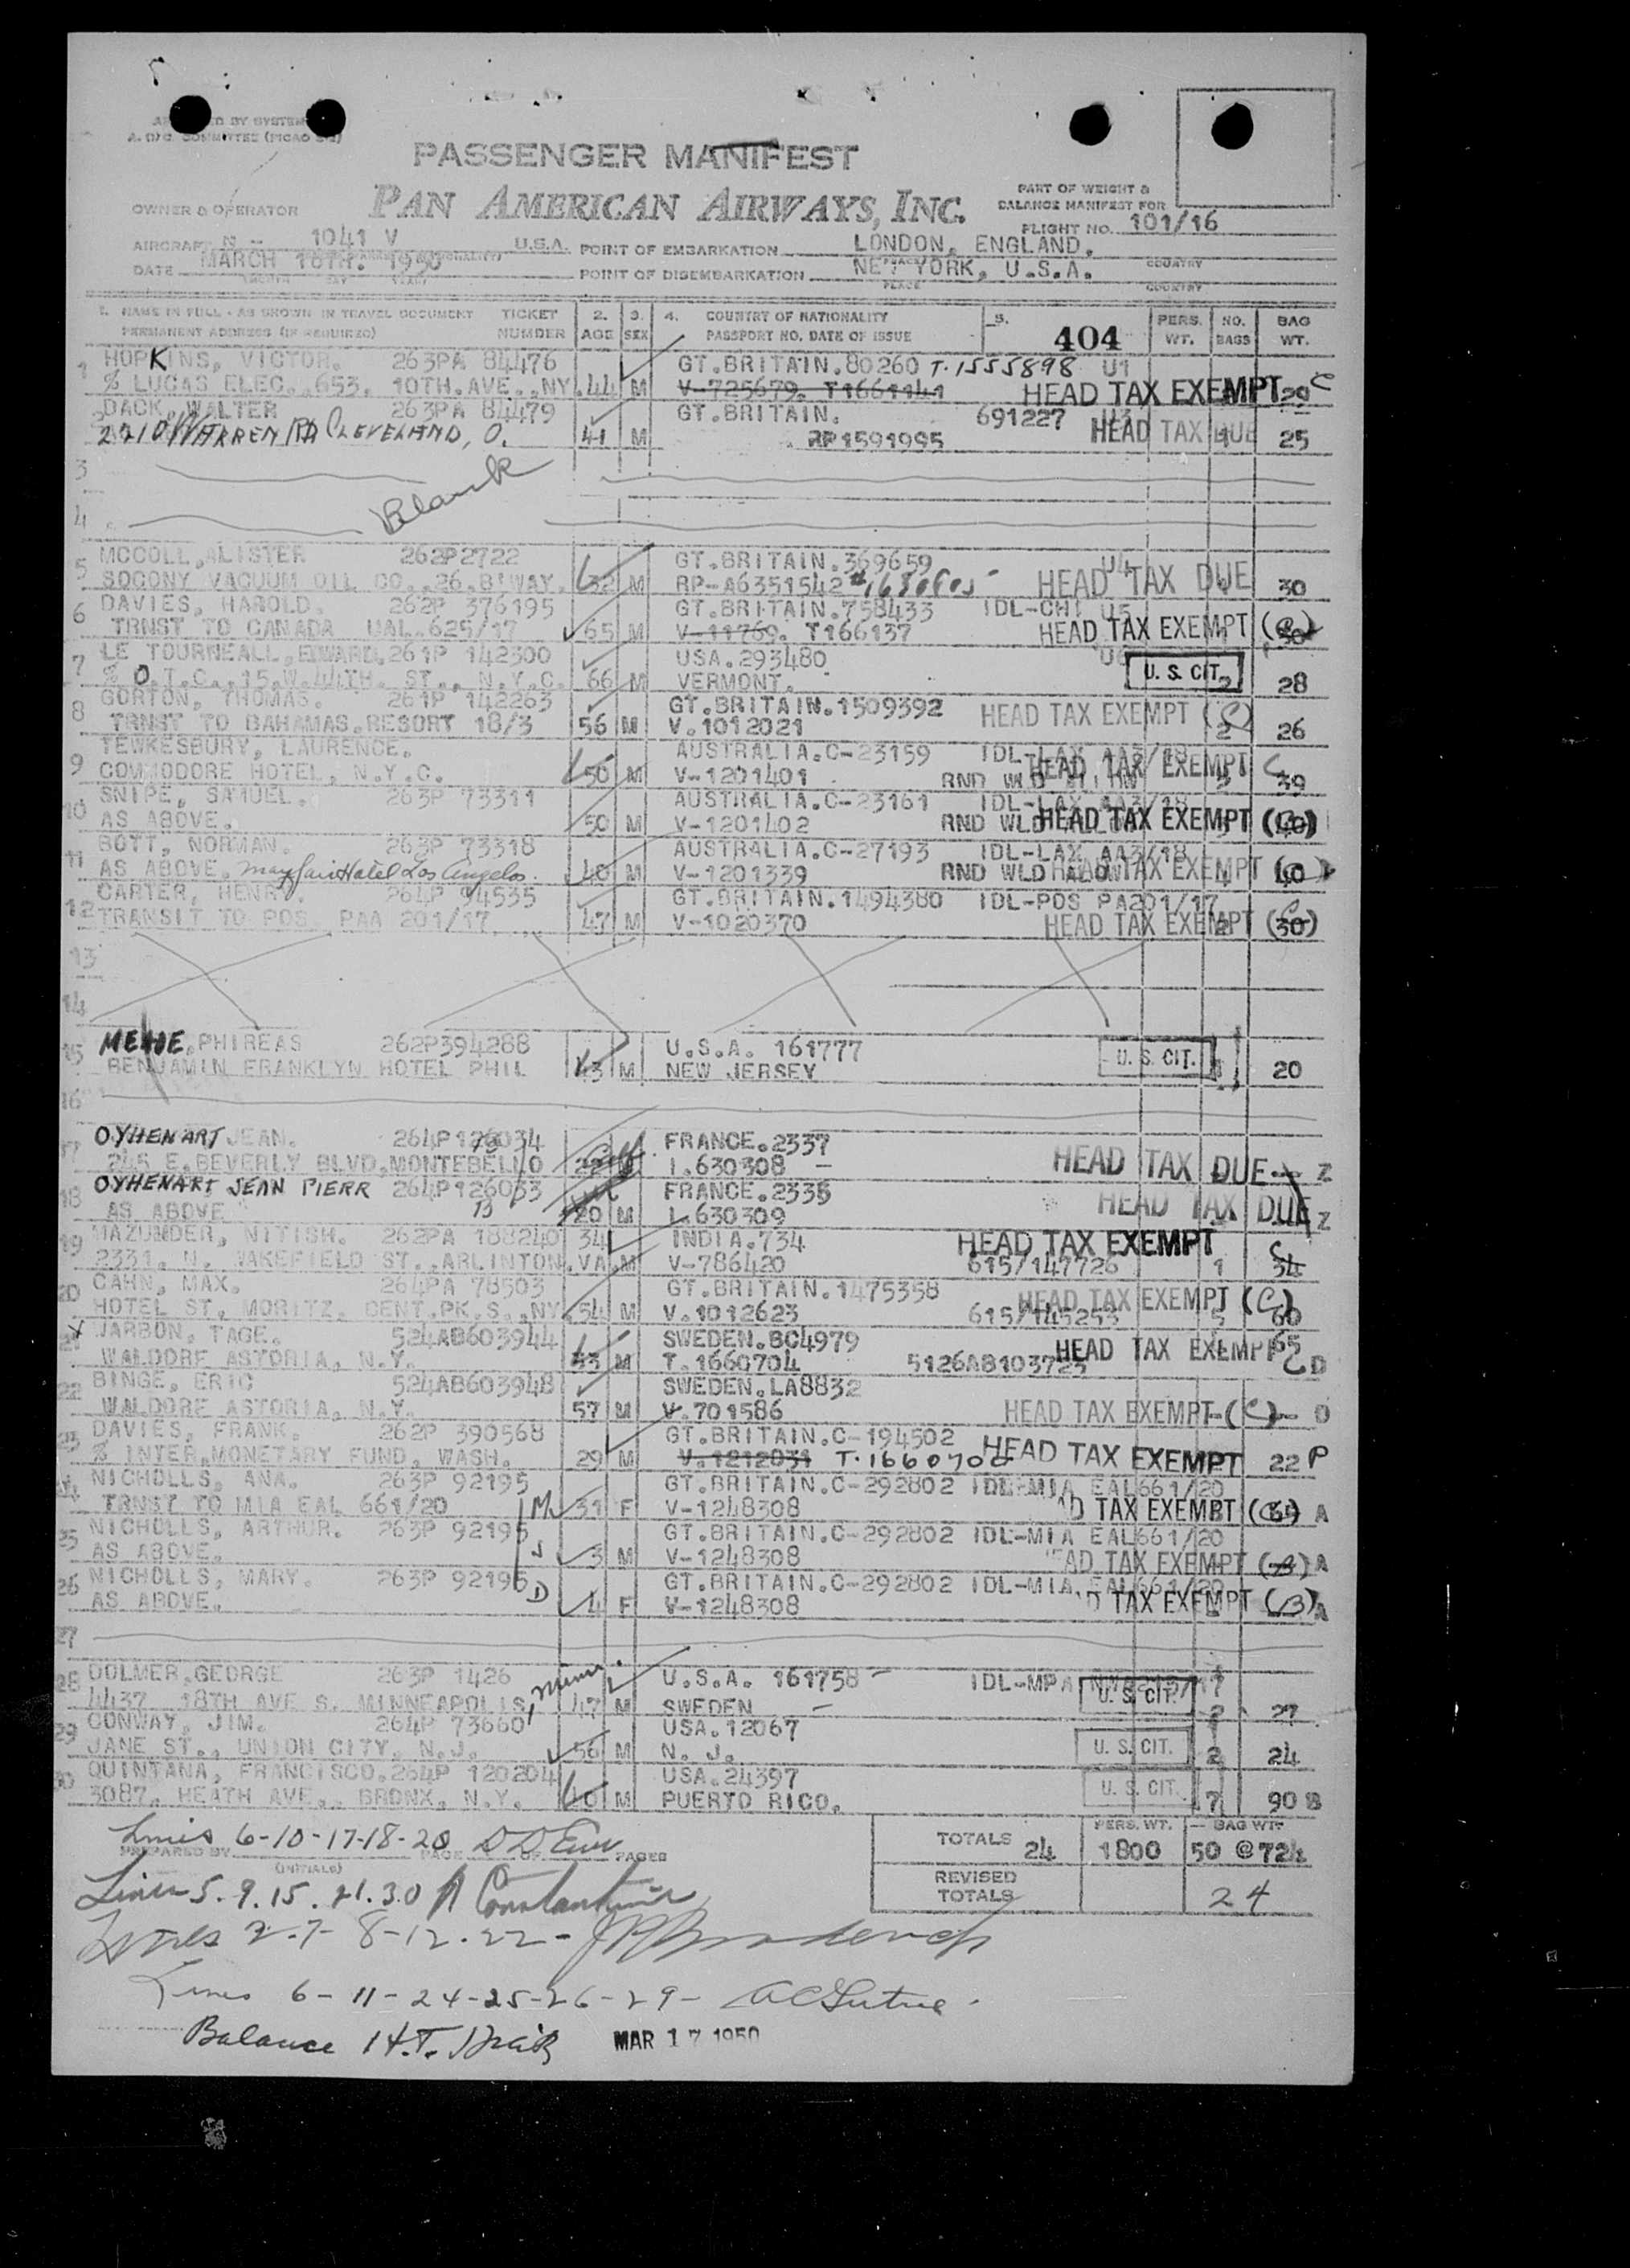 PASSENGER MANIFEST
PAN AMERICAN AIRWAYS, INC.
PART OF WEIGHT &
BALANCE MANIFEST FOR
OWNER & OPERATOR
FLIGHT NO. 101/16
AIRCRAFT N - 1041 V U.S.A. POINT OF EMBARKATION LONDON, ENGLAND.
DATE MARCH 16TH. 1950 POINT OF DISEMBARKATION NEW YORK, U.S.A.
PLACE COUNTRY
1. NAME IN FULL - AS SHOWN IN TRAVEL DOCUMENT TICKET 2. 3. 4. COUNTRY OF NATIONALITY 5. PERS. NO. BAG
PERMANENT ADDRESS (IF REQUIRED) NUMBER AGE SEX PASSPORT NO. DATE OF ISSUE 404 WT. BAGS WT.
1 HOPKINS, VICTOR. 263PA 84476 GT.BRITAIN.80260 T.1555898 U1
% LUCAS ELEC..653. 10TH.AVE..NY. 44 M V-725679. T1661141 HEAD TAX EXEMPT 29 C
2 DACK, WALTER 263PA 84479 GT.BRITAIN. 691227 U3
2210 WARREN RD CLEVELAND, O. 41 M RP1591995 HEAD TAX DUE 25
3
Blank
4
5 MCCOLL,ALISTER 262P2722 GT.BRITAIN.369659 U4
SOCONY VACUUM OIL CO..26.B'WAY. 32 M RP-A6351542 HEAD TAX DUE 30
6 DAVIES, HAROLD. 262P 376195 GT.BRITAIN.758433 IDL-CHI U5
TRNST TO CANADA UAL.625/17 65 M V-11769. T166137 HEAD TAX EXEMPT (C)
7 LE TOURNEALL,EDWARD.261P 142300 USA.293480 U6
% O.T.C..15.W.44TH. ST., N.Y.C. 66 M VERMONT. U. S. CIT. 2 28
8 GORTON, THOMAS. 261P 142263 GT.BRITAIN.1509392 HEAD TAX EXEMPT (C)
TRNST TO BAHAMAS.RESORT 18/3 56 M V.1012021 2 26
9 TEWKESBURY, LAURENCE. AUSTRALIA.C-23159 IDL-LAX AA3/18
COMMODORE HOTEL, N.Y.C. 50 M V-1201401 RND WLD HEAD TAX EXEMPT C 39
10 SNIPE, SAMUEL. 263P 73311 AUSTRALIA.C-23161 IDL-LAX AA3/18
AS ABOVE. 50 M V-1201402 RND WLD HEAD TAX EXEMPT (40)
11 BOTT, NORMAN. 263P 73318 AUSTRALIA.C-27193 IDL-LAX AA3/18
AS ABOVE. Mayfair Hotel Los Angelos. 40 M V-1201339 RND WLD HEAD TAX EXEMPT 40
12 CARTER, HENRY. 264P 94535 GT.BRITAIN.1494380 IDL-POS PA201/17
TRANSIT TO POS PAA 201/17 47 M V-1020370 HEAD TAX EXEMPT 2 (30)
13
14
15 PHIREAS 262P394288 U.S.A. 161777
BENJAMIN FRANKLYN HOTEL PHIL 43 M NEW JERSEY U. S. CIT. 20
16
17 OYHENART JEAN. 264P126034 FRANCE.2337
245 E.BEVERLY BLVD.MONTEBELLO M I.630308 - HEAD TAX DUE Z
18 OYHENART JEAN PIERR 264P126033 FRANCE.2335
AS ABOVE 20 M I.630309 HEAD TAX DUE Z
19 MAZUMDER, NITISH. 262PA 188240 34 INDIA.734 HEAD TAX EXEMPT
2331. N. WAKEFIELD ST..ARLINTON.VA.M V-786420 615/147726 1 34 C
20 CAHN, MAX. 264PA 78503 GT.BRITAIN.1475358 HEAD TAX EXEMPT (C)
HOTEL ST, MORITZ. CENT.PK.S..NY. 54 M V.1012623 615/145253 5 60
21 JARBON, TAGE. 524AB603944 SWEDEN.BC4979 65
WALDORF ASTORIA, N.Y. 43 M T.1660704 5126AB103725 HEAD TAX EXEMPT C D
22 BINGE, ERIC 524AB603948 SWEDEN.LA8832
WALDORF ASTORIA, N.Y. 57 M V.701586 HEAD TAX EXEMPT (C) D
23 DAVIES, FRANK. 262P 390568 GT.BRITAIN.C-194502
% INTER.MONETARY FUND. WASH. 29 M V.1212031 T.1660700 HEAD TAX EXEMPT 22 P
24 NICHOLLS, ANA. 263P 92195 GT.BRITAIN.C-292802 IDL-MIA EAL661/20
TRNST TO MIA EAL 661/20 M 31 F V-1248308 TAX EXEMPT A
25 NICHOLLS, ARTHUR. 263P 92195 GT.BRITAIN.C-292802 IDL-MIA EAL661/20
AS ABOVE. 3 M V-1248308 TAX EXEMPT A
26 NICHOLLS, MARY. 263P 92195 GT.BRITAIN.C-292802 IDL-MIA EAL661/20
AS ABOVE. D 4 F V-1248308 TAX EXEMPT A
27
28 DOLMER,GEORGE 263P 1426 U.S.A. 161758 - IDL-MPA
4437 18TH AVE S. MINNEAPOLIS, Minn. 47 M SWEDEN - U. S. CIT. 2 27
29 CONWAY, JIM. 264P 73660 USA.12067
JANE ST., UNION CITY, N.J. 56 M N. J. U. S. CIT. 2 24
30 QUINTANA, FRANCISCO.264P 120204 USA.24397
3087. HEATH AVE.. BRONX, N.Y. 40 M PUERTO RICO. U. S. CIT. 7 90 B
Lines 6-10-17-18-20
PREPARED BY PAGE OF PAGES
(INITIALS)
TOTALS 24 PERS. WT. 1800 BAG WT. 50 @ 724
REVISED TOTALS 24
Lines 5.9.15.21.30 Constantine
Lines 2-7-8-12-22-
Lines 6-11-24-25-26-29-
Balance H.T.
MAR 17 1950